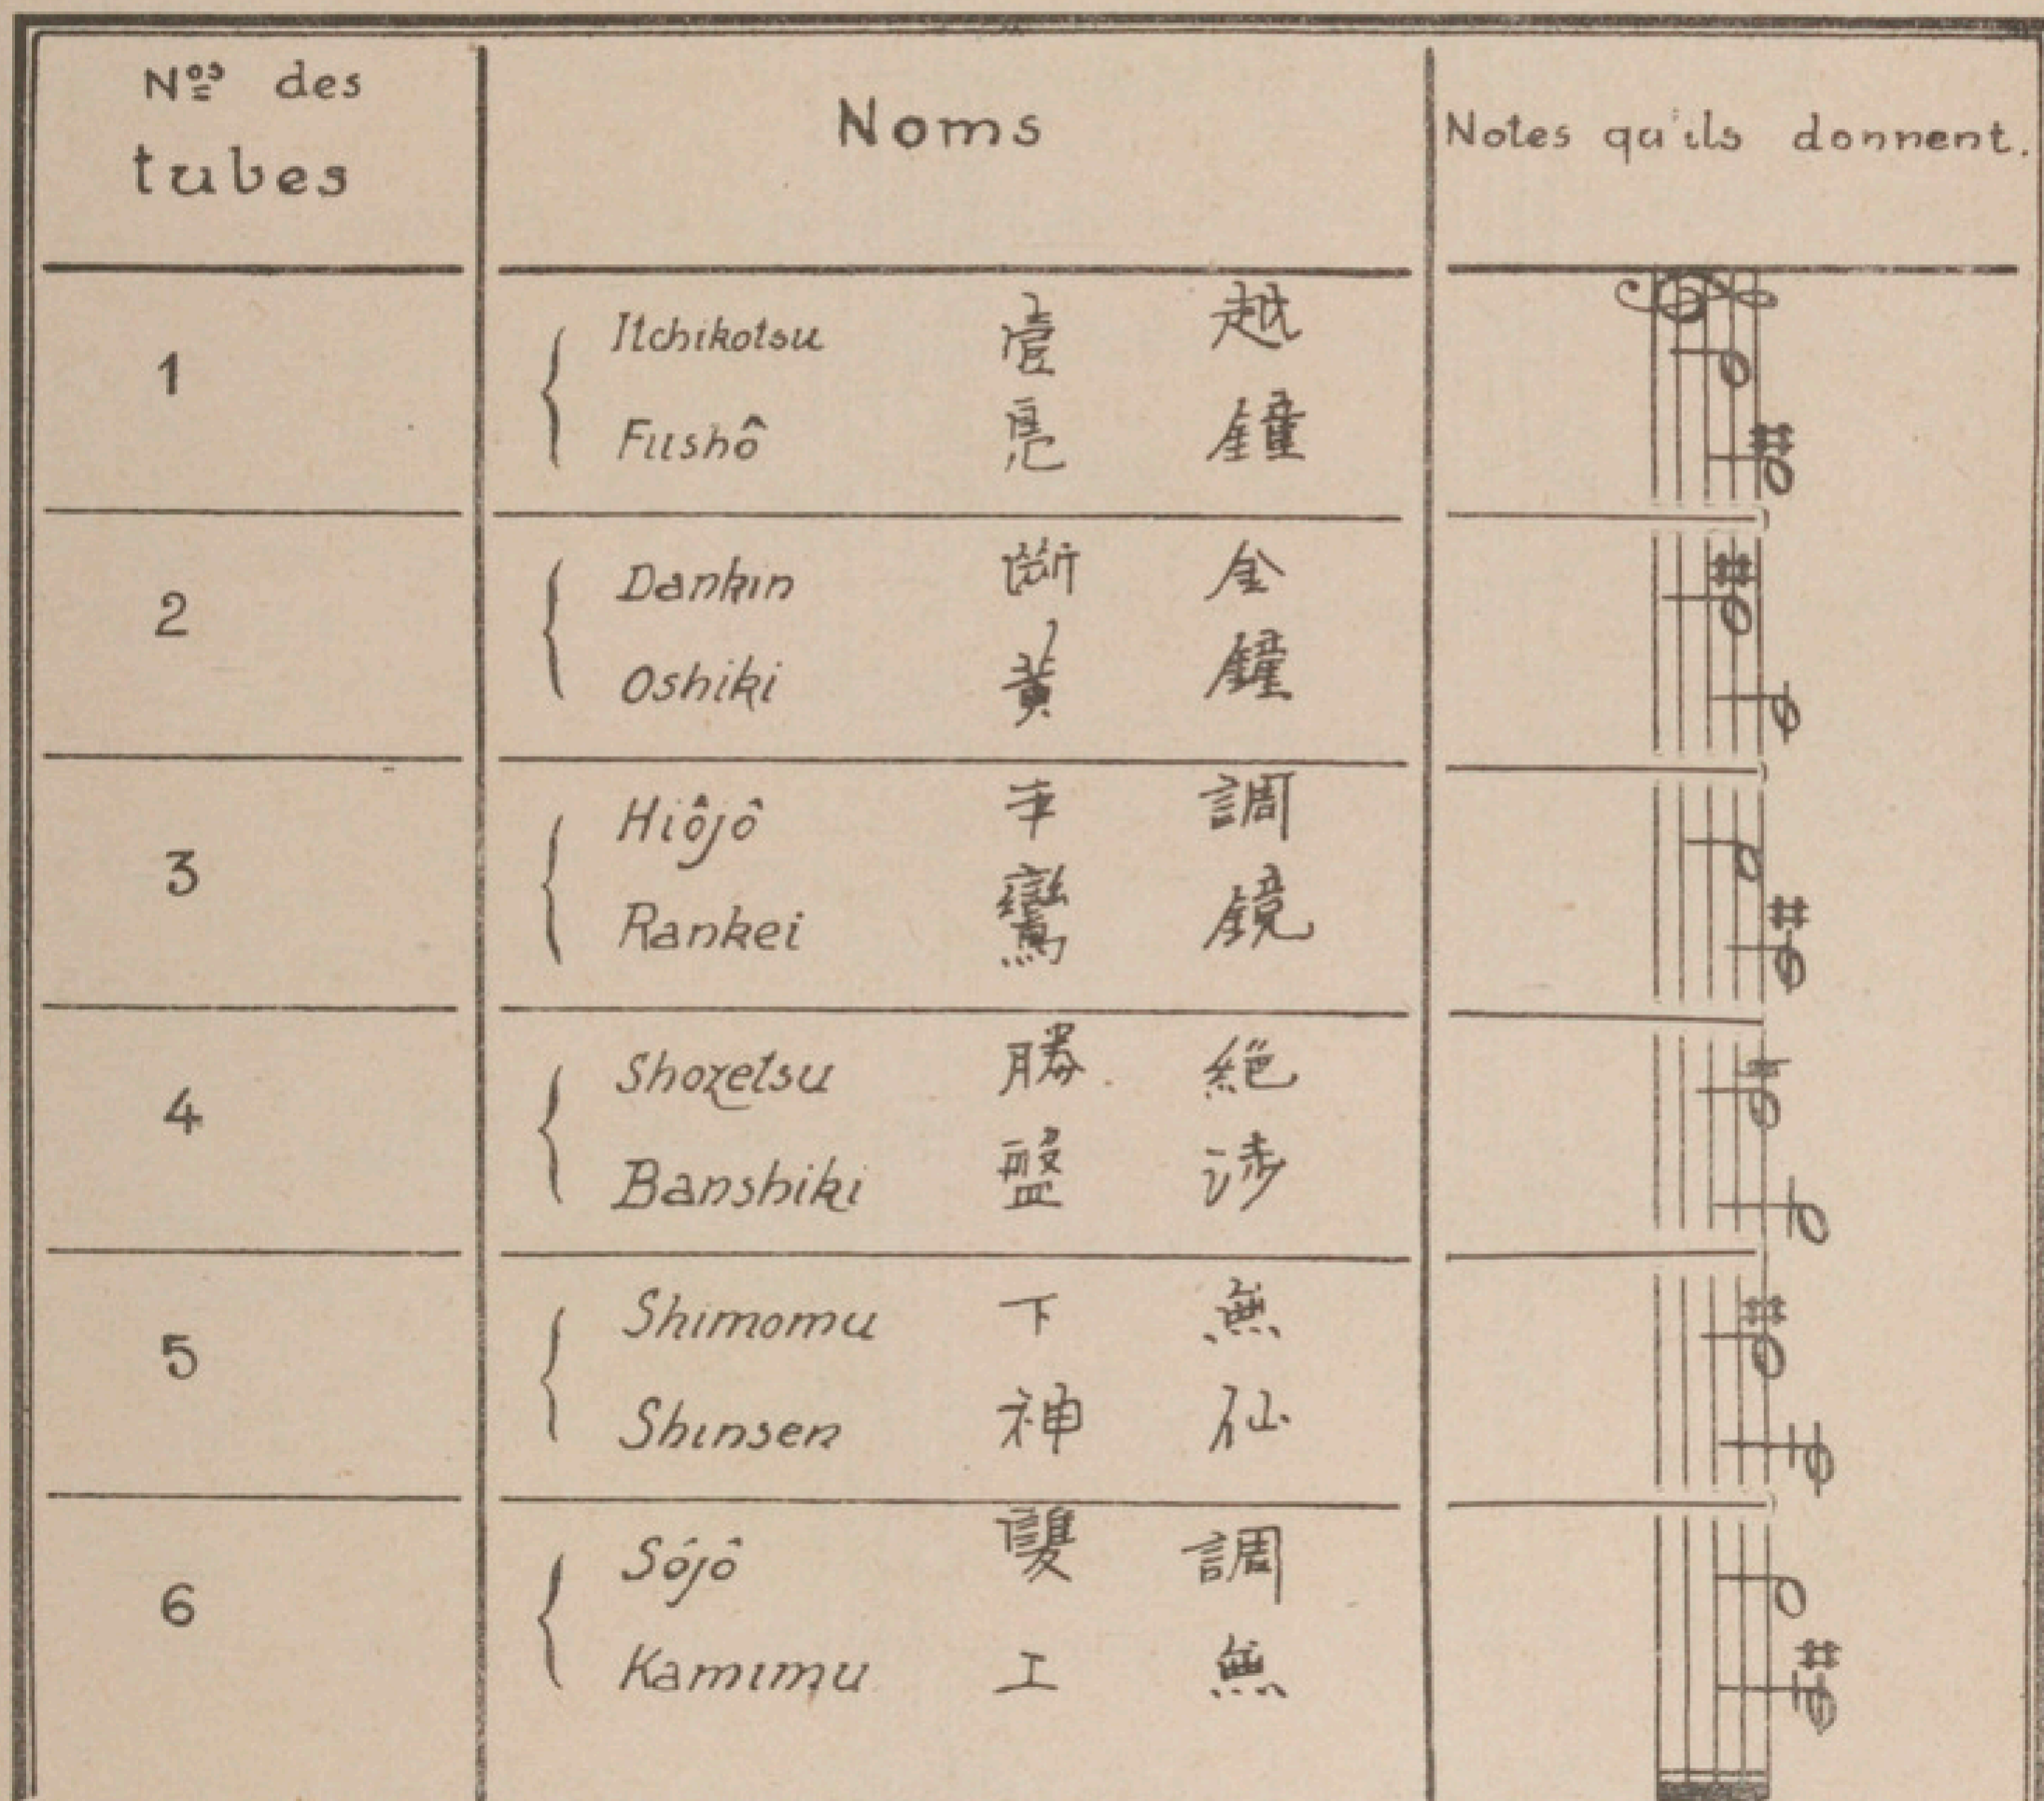 Nºˢ des
tubes
Noms
Notes qu'ils donnent.
1
Itchikotsu 壹 越
Fushô 鳧 鐘
2
Dankin 斷 金
Oshiki 黃 鐘
3
Hiôjô 平 調
Rankei 鸞 鏡
4
Shozetsu 勝 絕
Banshiki 盤 涉
5
Shimomu 下 無
Shinsen 神 仙
6
Sójô 雙 調
Kamimu 工 無